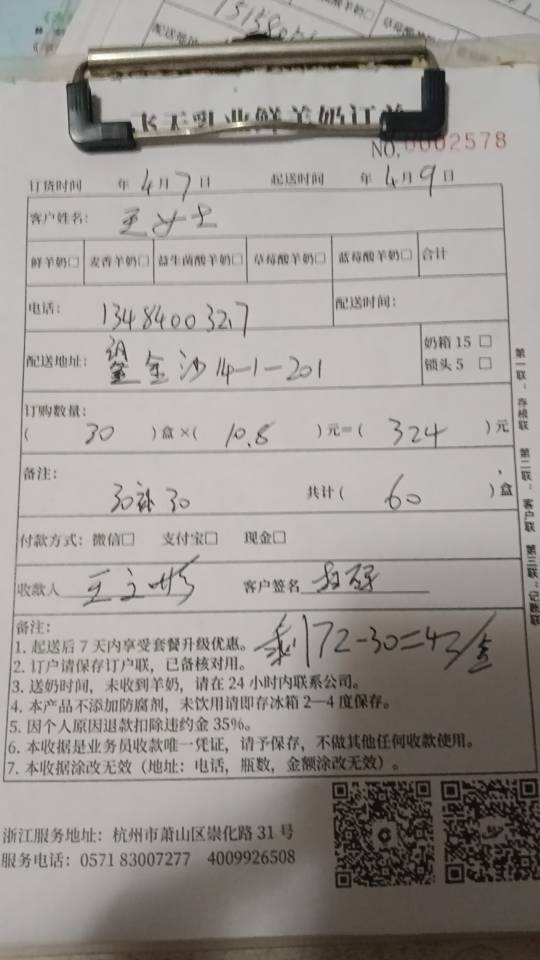 飞天乳业鲜羊奶订单
NO.0002578
订货时间 年4月7日 起送时间 年4月9日
客户姓名: 王女士
鲜羊奶□ 麦香羊奶□ 益生菌酸羊奶□ 草莓酸羊奶□ 蓝莓酸羊奶□ 合计
电话: 1348400327 配送时间:
配送地址: 金沙14-1-201 奶箱15 □
锁头5 □
订购数量:
( 30 )盒×( 10.8 )元=( 324 )元
备注: 30补30 共计( 60 )盒
付款方式: 微信□ 支付宝□ 现金□
收款人 王 客户签名
备注:
1. 起送后7天内享受套餐升级优惠。
剩172-30=43盒
2. 订户请保存订户联，已备核对用。
3. 送奶时间，未收到羊奶，请在24小时内联系公司。
4. 本产品不添加防腐剂，未饮用请即存冰箱2—4度保存。
5. 因个人原因退款扣除违约金35%。
6. 本收据是业务员收款唯一凭证，请予保存，不做其他任何收款使用。
7. 本收据涂改无效（地址：电话，瓶数，金额涂改无效）。
第一联：存根联 第二联：客户联 第三联：记账联
浙江服务地址：杭州市萧山区崇化路31号
服务电话：0571 83007277 4009926508